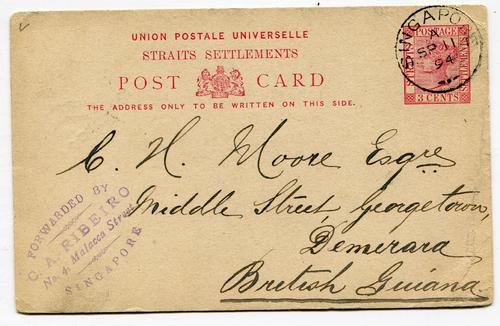 UNION POSTALE UNIVERSELLE
STRAITS SETTLEMENTS
POST CARD
THE ADDRESS ONLY TO BE WRITTEN ON THIS SIDE.
SINGAPORE
A
SP 11
94
POSTAGE
SETTLEMENTS
3 CENTS
C. H. Moore Esqre
Middle Street, Georgetown,
Demerara
British Guiana.
FORWARDED BY
C. A. RIBEIRO
No. 4, Malacca Street
SINGAPORE